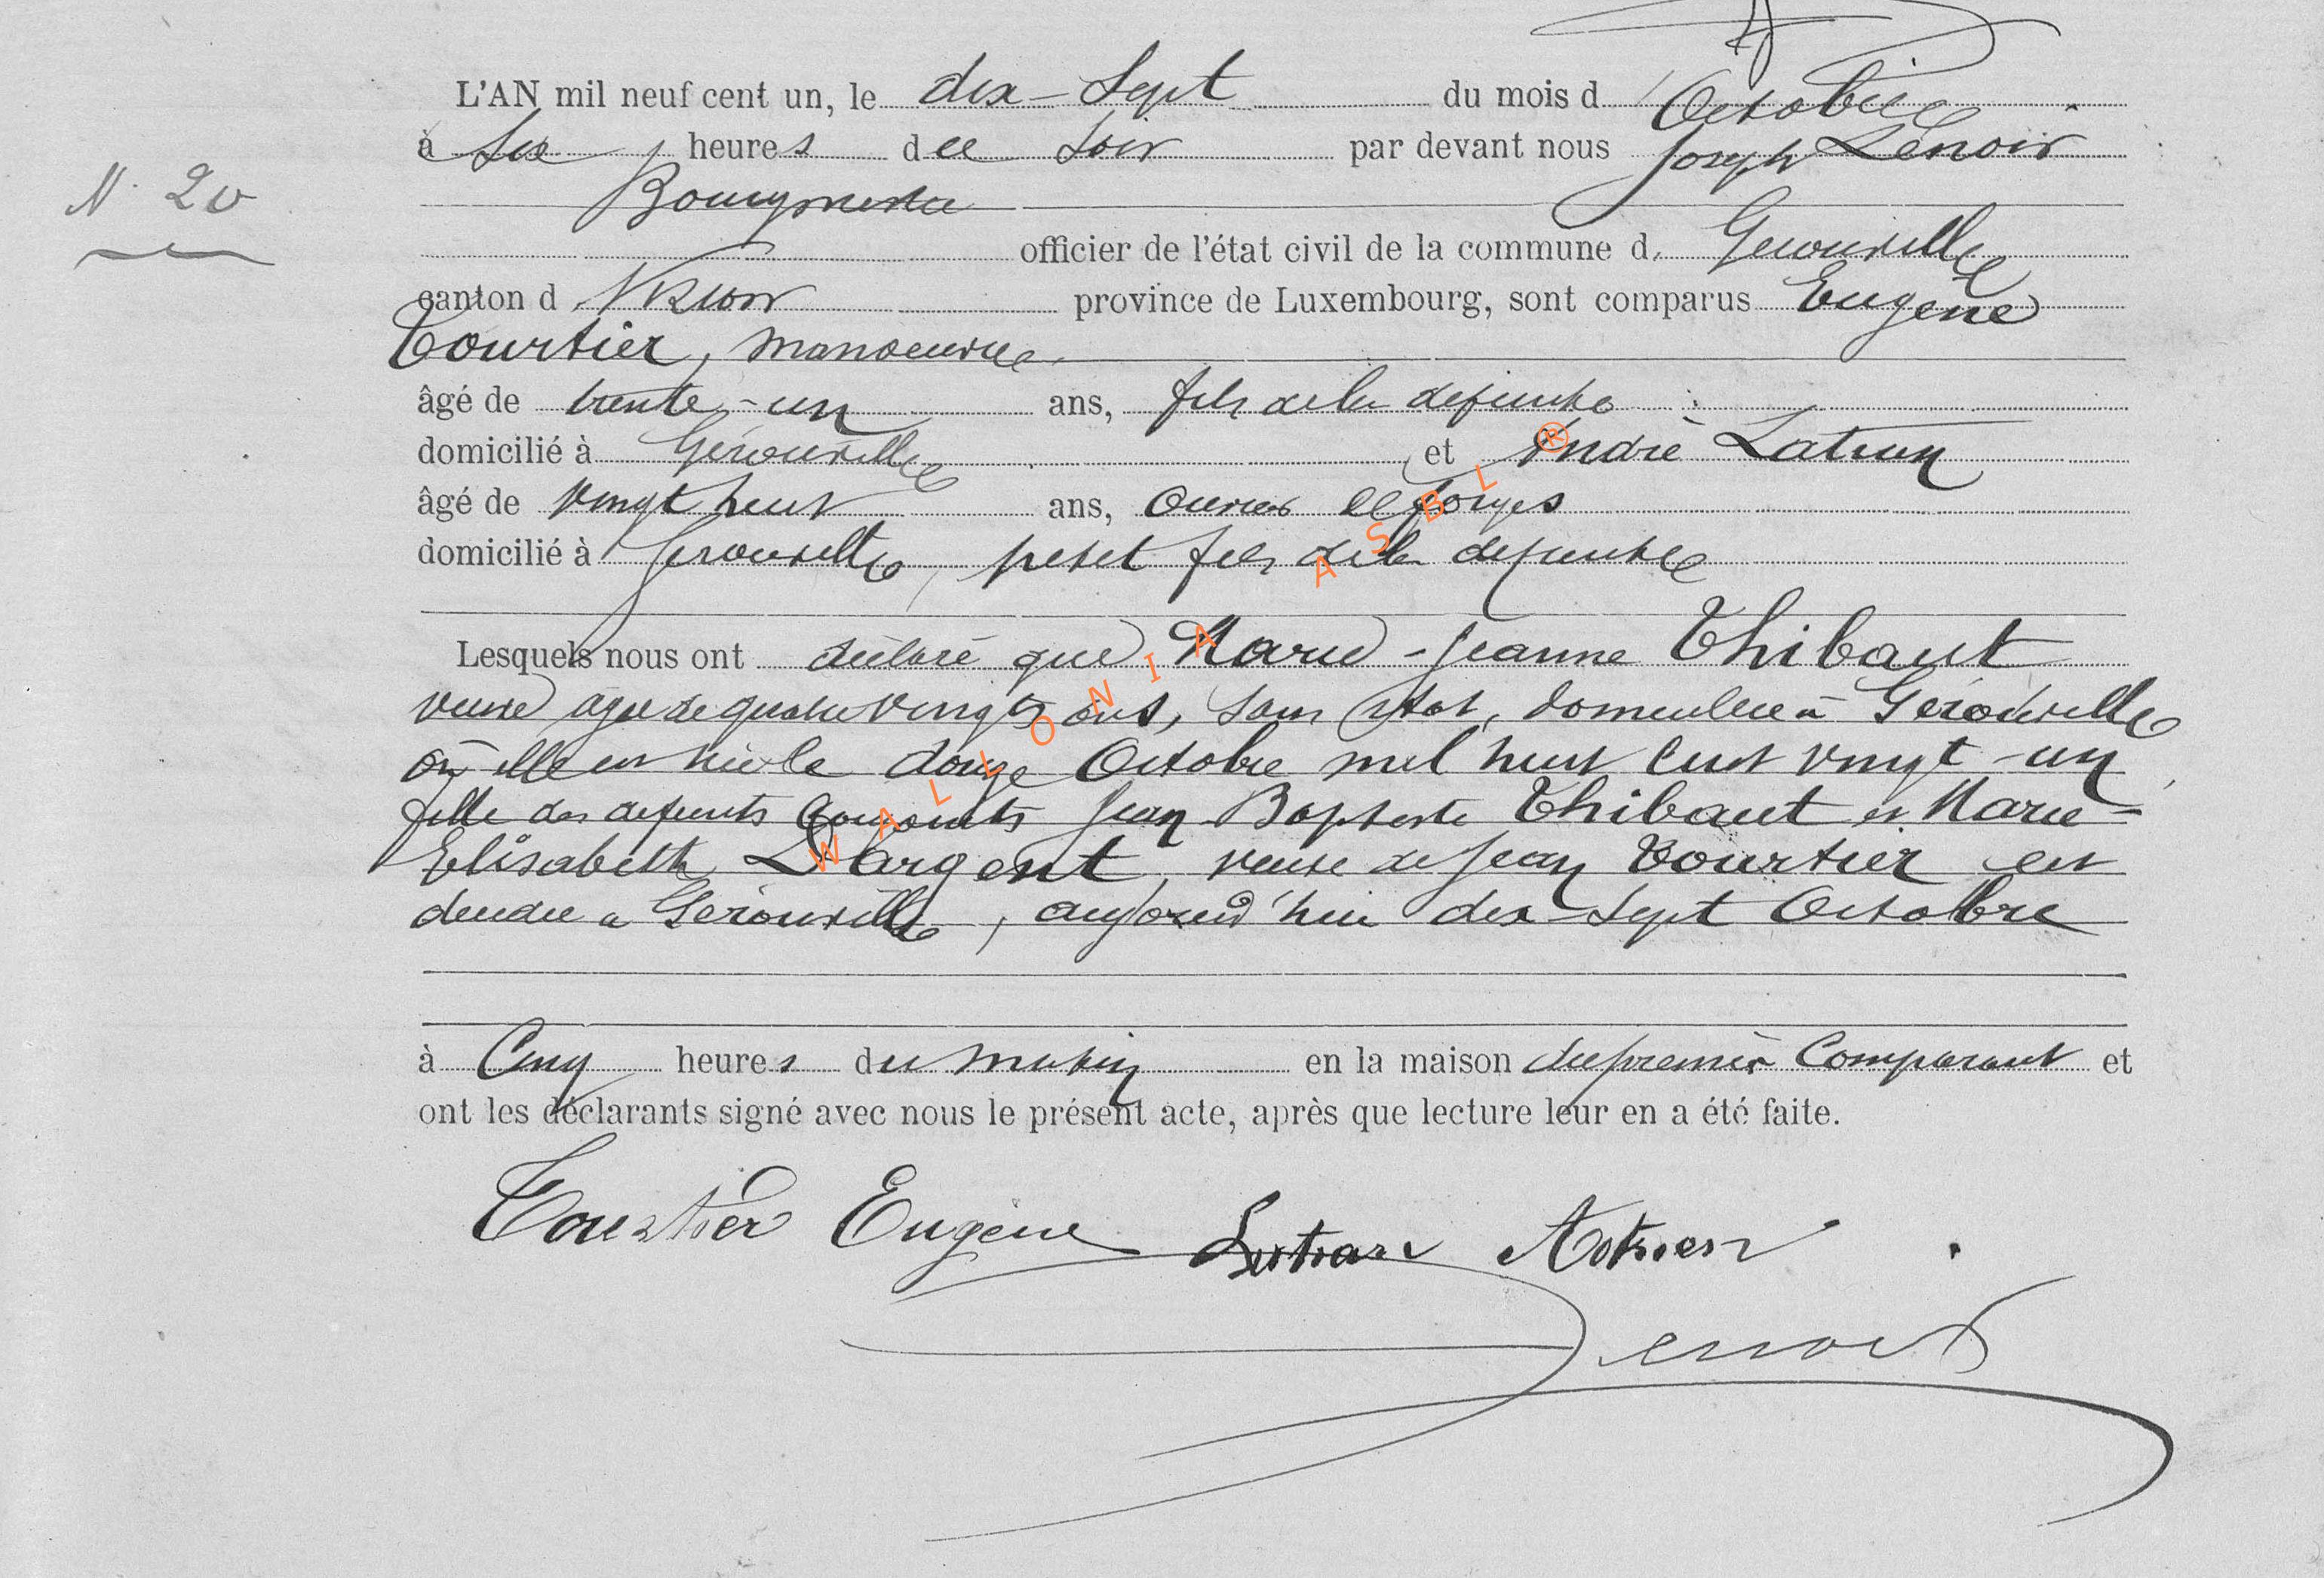 L'AN mil neuf cent un, le dix-Sept du mois d'Octobre
à Six heures du Soir par devant nous Joseph Lenoir
N. 20
Bourgmestre
officier de l'état civil de la commune d. Gerouville
canton d Virton province de Luxembourg, sont comparus Eugène
Tourtier, manoeuvre
âgé de trente-un ans, fils de la defunte
domicilié à Gérouville, et André Latran
âgé de vingt huit ans, ouvrier de forges
domicilié à Gerouville, petit fils de la defunte
Lesquels nous ont déclaré que Marie-Jeanne Thibaut
veuve agée de quatre vingts ans, sans état, domiciliée à Gérouville
où elle est née le douze Octobre mil huit cent vingt-un
fille des defunts Conjoints Jean Baptiste Thibaut et Marie-
Elisabeth Dargent, veuve de Jean Tourtier est
décédée à Gérouville, aujourd'hui dix-Sept Octobre
à Cinq heures du matin en la maison du premier Comparant et
ont les déclarants signé avec nous le présent acte, après que lecture leur en a été faite.
Tourtier Eugène Lenoir
WALLONIA ASBL ®